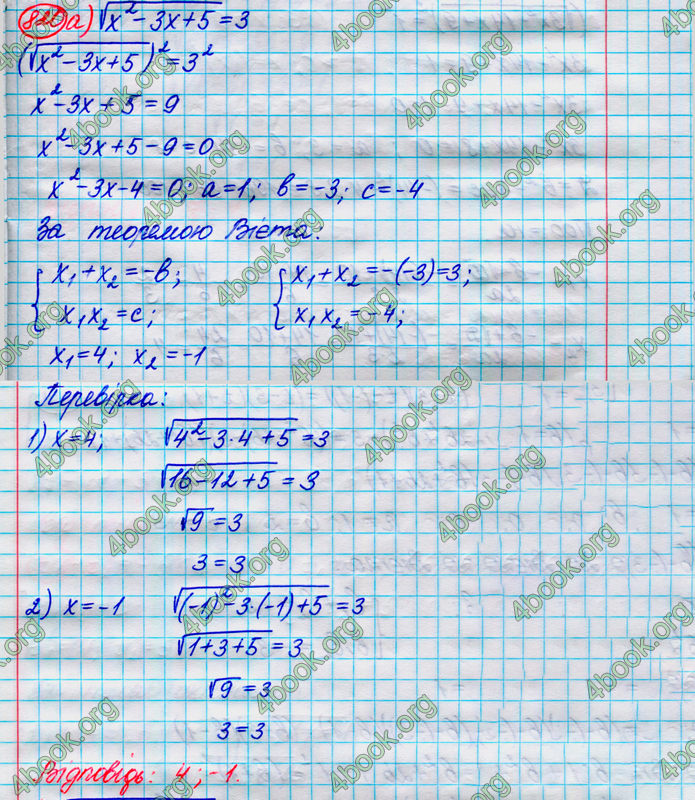 826 а) √(x² - 3x + 5) = 3
(√(x² - 3x + 5))² = 3²
x² - 3x + 5 = 9
x² - 3x + 5 - 9 = 0
x² - 3x - 4 = 0; a = 1; b = -3; c = -4
За теоремою Вієта:
{ x₁ + x₂ = -b; { x₁ + x₂ = -(-3) = 3;
x₁x₂ = c; x₁x₂ = -4;
x₁ = 4; x₂ = -1
Перевірка:
1) x = 4; √(4² - 3·4 + 5) = 3
√(16 - 12 + 5) = 3
√9 = 3
3 = 3
2) x = -1 √((-1)² - 3·(-1) + 5) = 3
√(1 + 3 + 5) = 3
√9 = 3
3 = 3
Відповідь: 4; -1.
4book.org